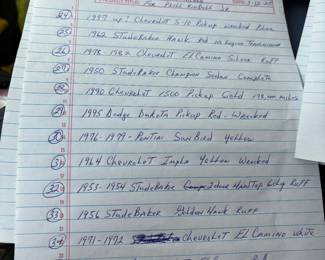 For Phil Roberts Jr
24 1997 up? Chevrolet S-10 Pickup wrecked Blue
25 1962 StudeBaker Hawk Red No Engine Transmission
26 1978-1982 Chevrolet ElCamino Silver Ruff
27 1950 StudeBaker Champion Sedan Complete
28 1990 Chevrolet 1500 Pickup Gold
29 1995 Dodge Dakota Pickup Red - Wrecked
30 1976-1979 - Pontiac SunBird Yellow
31 1964 Chevrolet Impla Yellow Wrecked
32 1953-1954 StudeBaker 2 door HardTop 6cly Ruff
33 1956 StudeBaker Golden Hawk Ruff
34 1971-1972 Chevrolet El Camino white